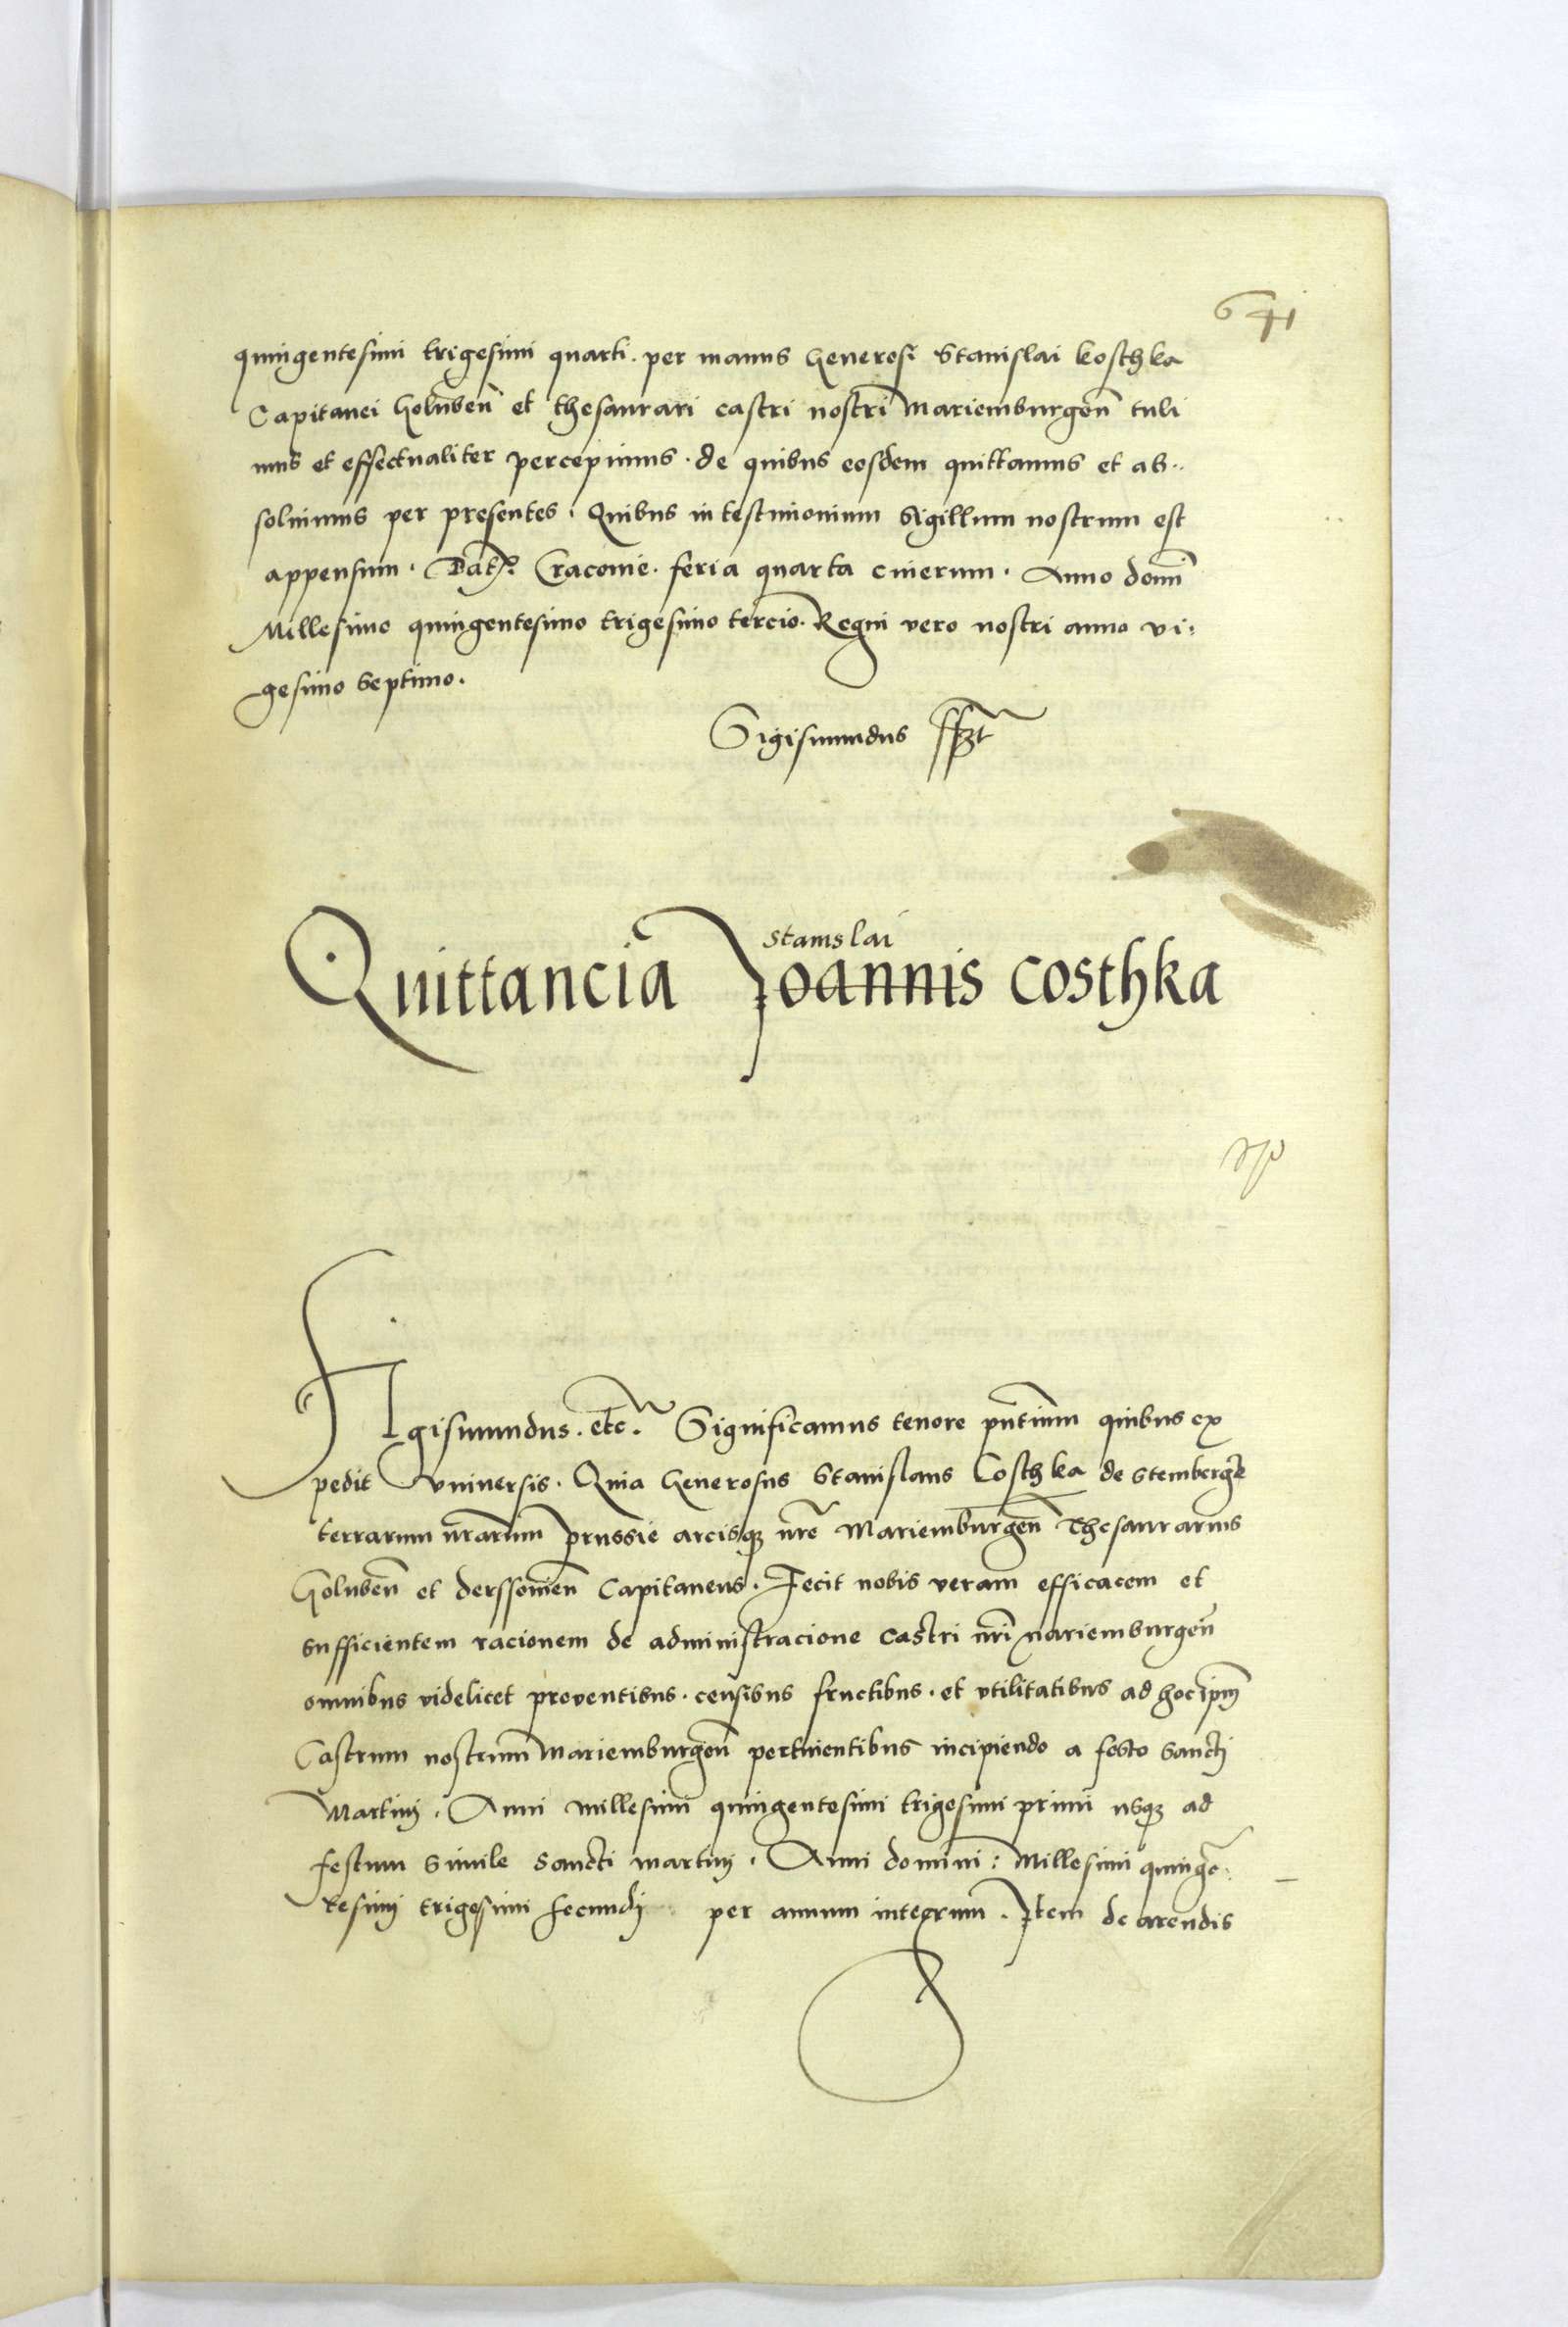 641
quingentesimi trigesimi quarti. per manus Generosi Stanislai Kosthka
Capitanei Golubeñ et thesaurari castri nostri Mariemburgeñ tuli
mus et effectualiter percepimus. de quibus eosdem quittamus et ab..
solvimus per presentes. Quibus in testimonium Sigillum nostrum est
appensum. Dat. Cracovie. feria quarta cinerum. Anno domi
Millesimo quingentesimo trigesimo tercio. Regni vero nostri anno vi:
gesimo septimo.
Sigismundus
stanislai
Quittancia Joannis Costhka
Sigismundus. etc. Significamus tenore pñtium quibus ex
pedit Universis. Quia Generosus Stanislaus Costhka de Stemberge
terrarum nr̃arum prussie arcisq nr̃e Mariemburgeñ Thesaurarius
Golubeñ et derssovieñ Capitaneus. Fecit nobis veram efficacem et
sufficientem racionem de administracione castri nr̃i mariemburgeñ
omnibus videlicet proventibus. censibus fructibus. et utilitatibus ad hoc ip̃m
Castrum nostrum Mariemburgeñ pertinentibus incipiendo a festo sancti
Martinj. Anni millesimi quingentesimi trigesimi primi usq ad
festum simile sancti martinj. Anni domini: Millesimi quinge:
tesimj trigesimi secundj per annum integrum. Item de arendis